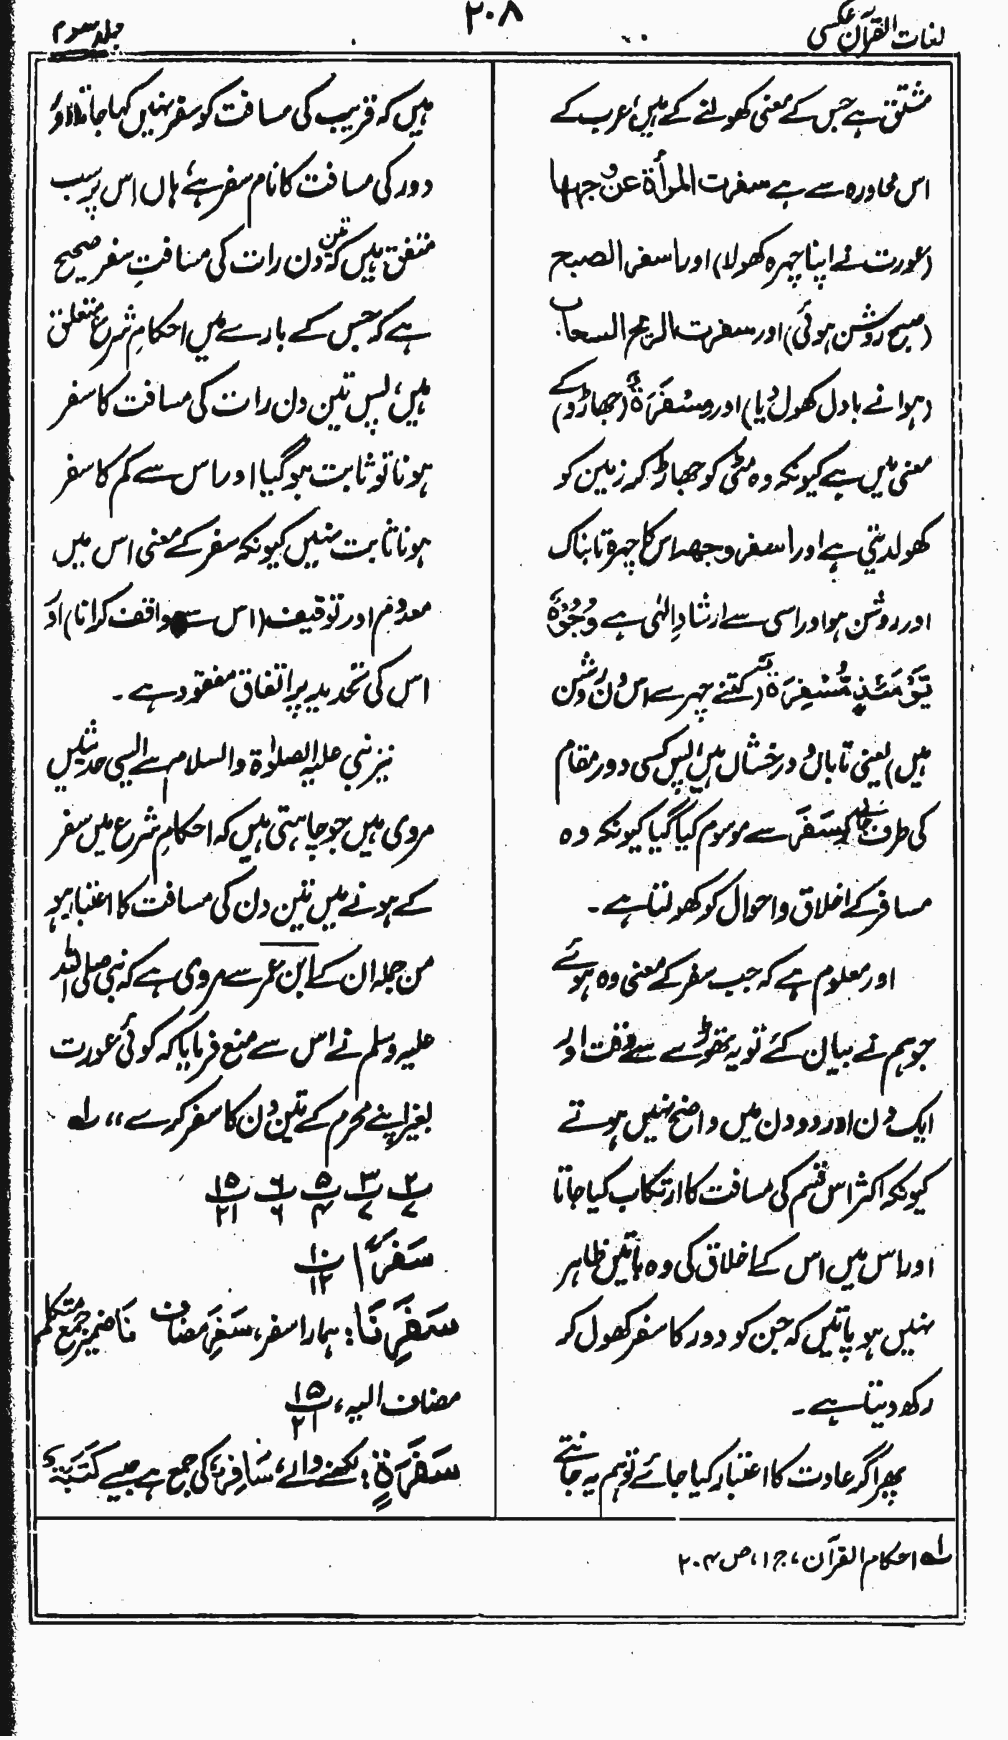 لغات القرآن عکسی
۲۰۸
جلد سوم
مشتق ہے جس کے معنی کھولنے کے ہیں، عرب کے
اس محاورہ سے ہے سفرت المرأۃ عن وجہہا
(عورت نے اپنا چہرہ کھولا) اور اسفر الصبح
(صبح روشن ہوئی) اور سفرت الریح السحاب
(ہوا نے بادل کھول دیا) اور مِسْفَرَۃٌ (جھاڑو) کے
معنی میں ہے کیونکہ وہ مٹی کو جھاڑ کر زمین کو
کھولدیتی ہے اور اسفر وجھہ اس کا چہرہ تابناک
اور روشن ہوا اور اسی سے ارشادِ الٰہی ہے وُجُوْہٌ
یَّوْمَئِذٍ مُّسْفِرَۃٌ (کتنے چہرے اس دن روشن
ہیں) یعنی تاباں و درخشاں ہیں، پس کسی دور مقام
کی طرف جانے کو سَفَر سے موسوم کیا گیا کیونکہ وہ
مسافر کے اخلاق و احوال کو کھولتا ہے۔
اور معلوم ہے کہ جب سفر کے معنی وہ ہوئے
جو ہم نے بیان کئے تو یہ تھوڑے سے وقت اور
ایک دن اور دو دن میں واضح نہیں ہوتے
کیونکہ اکثر اس قسم کی مسافت کا ارتکاب کیا جاتا
اور اس میں اس کے اخلاق کی وہ باتیں ظاہر
نہیں ہو پاتیں کہ جن کو دور کا سفر کھول کر
رکھ دیتا ہے۔
پھر اگر عادت کا اعتبار کیا جائے تو ہم یہ جانتے
ہیں کہ قریب کی مسافت کو سفر نہیں کہا جاتا اور
دور کی مسافت کا نام سفر ہے، ہاں اس پر سب
متفق ہیں کہ تین دن رات کی مسافت سفر صحیح
ہے کہ جس کے بارے میں احکامِ شرع متعلق
ہیں، پس تین دن رات کی مسافت کا سفر
ہونا تو ثابت ہو گیا اور اس سے کم کا سفر
ہونا ثابت نہیں کیونکہ سفر کے معنی اس میں
معدوم اور توقیف (اس سے واقف کرانا) اور
اس کی تحدید پر اتفاق مفقود ہے۔
نیز نبی علیہ الصلوٰۃ والسلام سے ایسی حدیثیں
مروی ہیں جو چاہتی ہیں کہ احکامِ شرع میں سفر
کے ہونے میں تین دن کی مسافت کا اعتبار ہو
من جملہ ان کے ابن عمر سے مروی ہے کہ نبی صلی اللہ
علیہ وسلم نے اس سے منع فرمایا کہ کوئی عورت
بغیر اپنے محرم کے تین دن کا سفر کرے،، لہ
۲/۷ ۳/۷ ۵/۴ ۶/۶ ۱۵/۲۱
سَفَرًا ۱۰/۱۲
سَفَرِنَا: ہمارا سفر، سَفَرِ مضاف نَا ضمیر جمع متکلم
مضاف الیہ، ۱۵/۲۱
سَفَرَۃٍ: لکھنے والے، سَافِرٌ کی جمع ہے جیسے کَتَبَۃٌ
لہ احکام القرآن، ج ۱، ص ۲۰۴